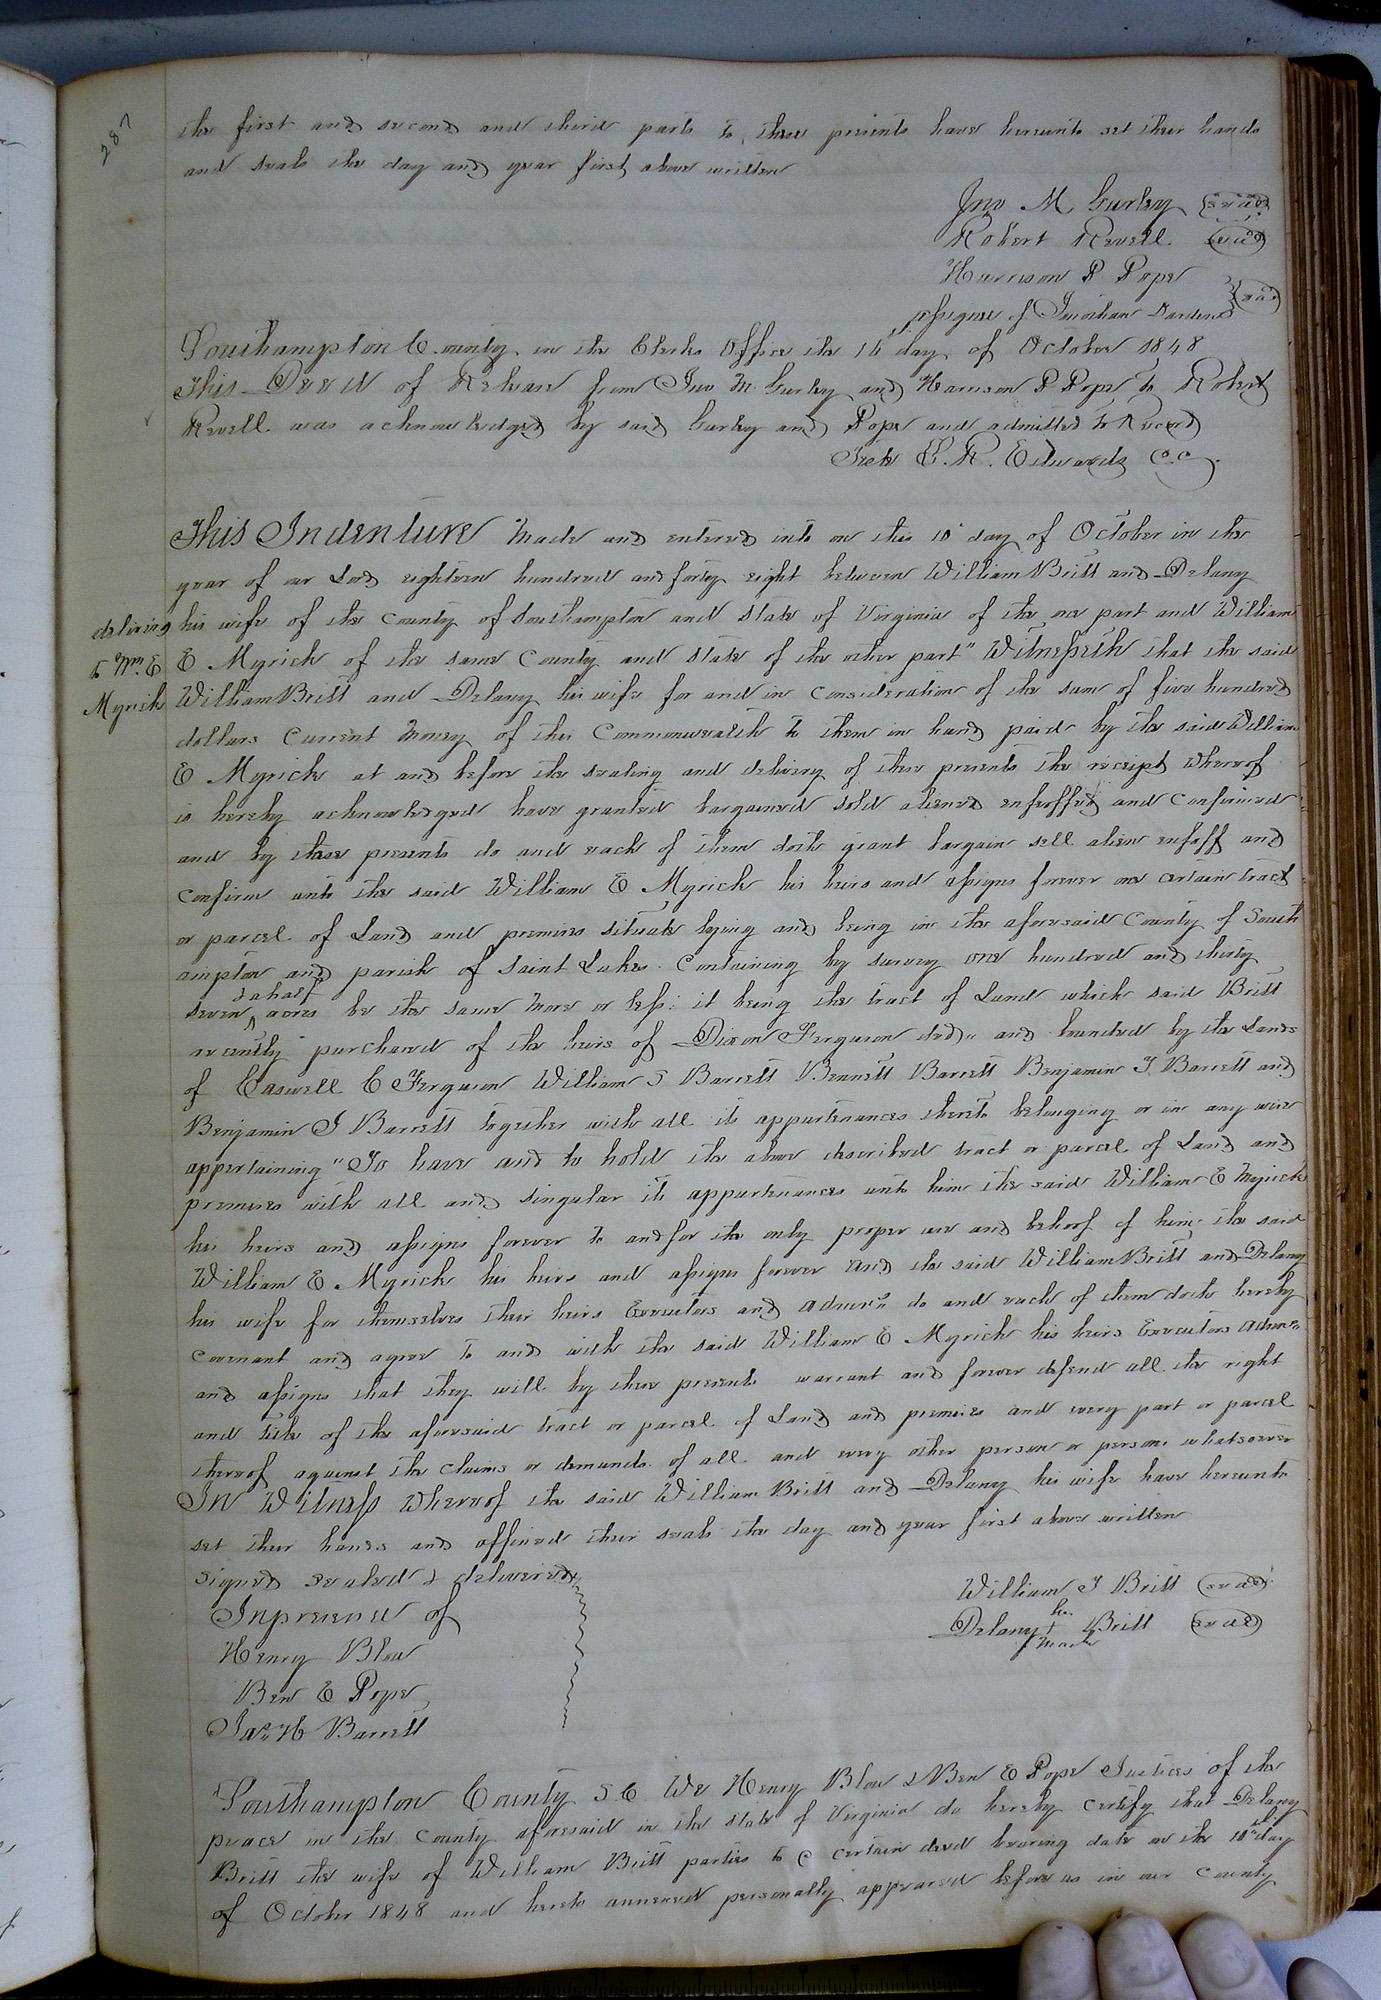 287
the first and second and third parts to these presents have hereunto set their hands
and seals the day and year first above written
Jno M Gurley seal
Robert Revell seal
Harrison P Pope
assignee of Jonathan Darden seal
Southampton County in the Clerks Office the 16th day of October 1848
This Deed of Release from Jno M Gurley and Harrison P Pope to Robert
Revell was acknowledged by said Gurley and Pope and admitted to Record
Teste L. R. Edwards C.C.
This Indenture made and entered into on this 10th day of October in the
year of our Lord eighteen hundred and forty eight between William Britt and Delany
his wife of the County of Southampton and State of Virginia of the one part and William
delivered
to Wm. E
Myrick
E Myrick of the same County and State of the other part" Witnesseth that the said
William Britt and Delany his wife for and in Consideration of the sum of five hundred
dollars Current Money of this Commonwealth to them in hand paid by the said William
E Myrick at and before the sealing and delivery of these presents the receipt whereof
is hereby acknowledged have granted bargained sold aliened enfeoffed and Confirmed
and by these presents do and each of them doth grant bargain sell alien enfeoff and
Confirm unto the said William E Myrick his heirs and assigns forever one certain tract
or parcel of Land and premises situate lying and being in the aforesaid County of South
ampton and parish of Saint Lukes Containing by survey one hundred and thirty
seven & a half acres be the same more or less: it being the tract of Land which said Britt
recently purchased of the heirs of Dixon Ferguson decd" and bounded by the Lands
of Caswell C Ferguson William S Barrett Bennett Barrett Benjamin T. Barrett and
Benjamin J Barrett together with all its appurtenances thereto belonging or in any wise
appertaining" To have and to hold the above described tract or parcel of Land and
premises with all and singular its appurtenances unto him the said William E Myrick
his heirs and assigns forever to and for the only proper use and behoof of him the said
William E. Myrick his heirs and assigns forever and the said William Britt and Delany
his wife for themselves their heirs Executors and admrs do and each of them doth hereby
Covenant and agree to and with the said William E Myrick his heirs Executors admrs
and assigns that they will by these presents warrant and forever defend all the right
and title of the aforesaid tract or parcel of Land and premises and every part or parcel
thereof against the claims or demands of all and every other person or persons whatsoever
In Witness Whereof the said William Britt and Delany his wife have hereunto
set their hands and affixed their seals the day and year first above written
Signed sealed & delivered
In presence of
Henry Blow
Ben E Pope
Jas. H Barrett
William J Britt seal
her
Delany + Britt seal
mark
Southampton County S C We Henry Blow & Ben E Pope Justices of the
peace in the County aforesaid in the State of Virginia do hereby certify that Delany
Britt the wife of William Britt parties to a certain deed bearing date on the 10th day
of October 1848 and hereto annexed personally appeared before us in our County